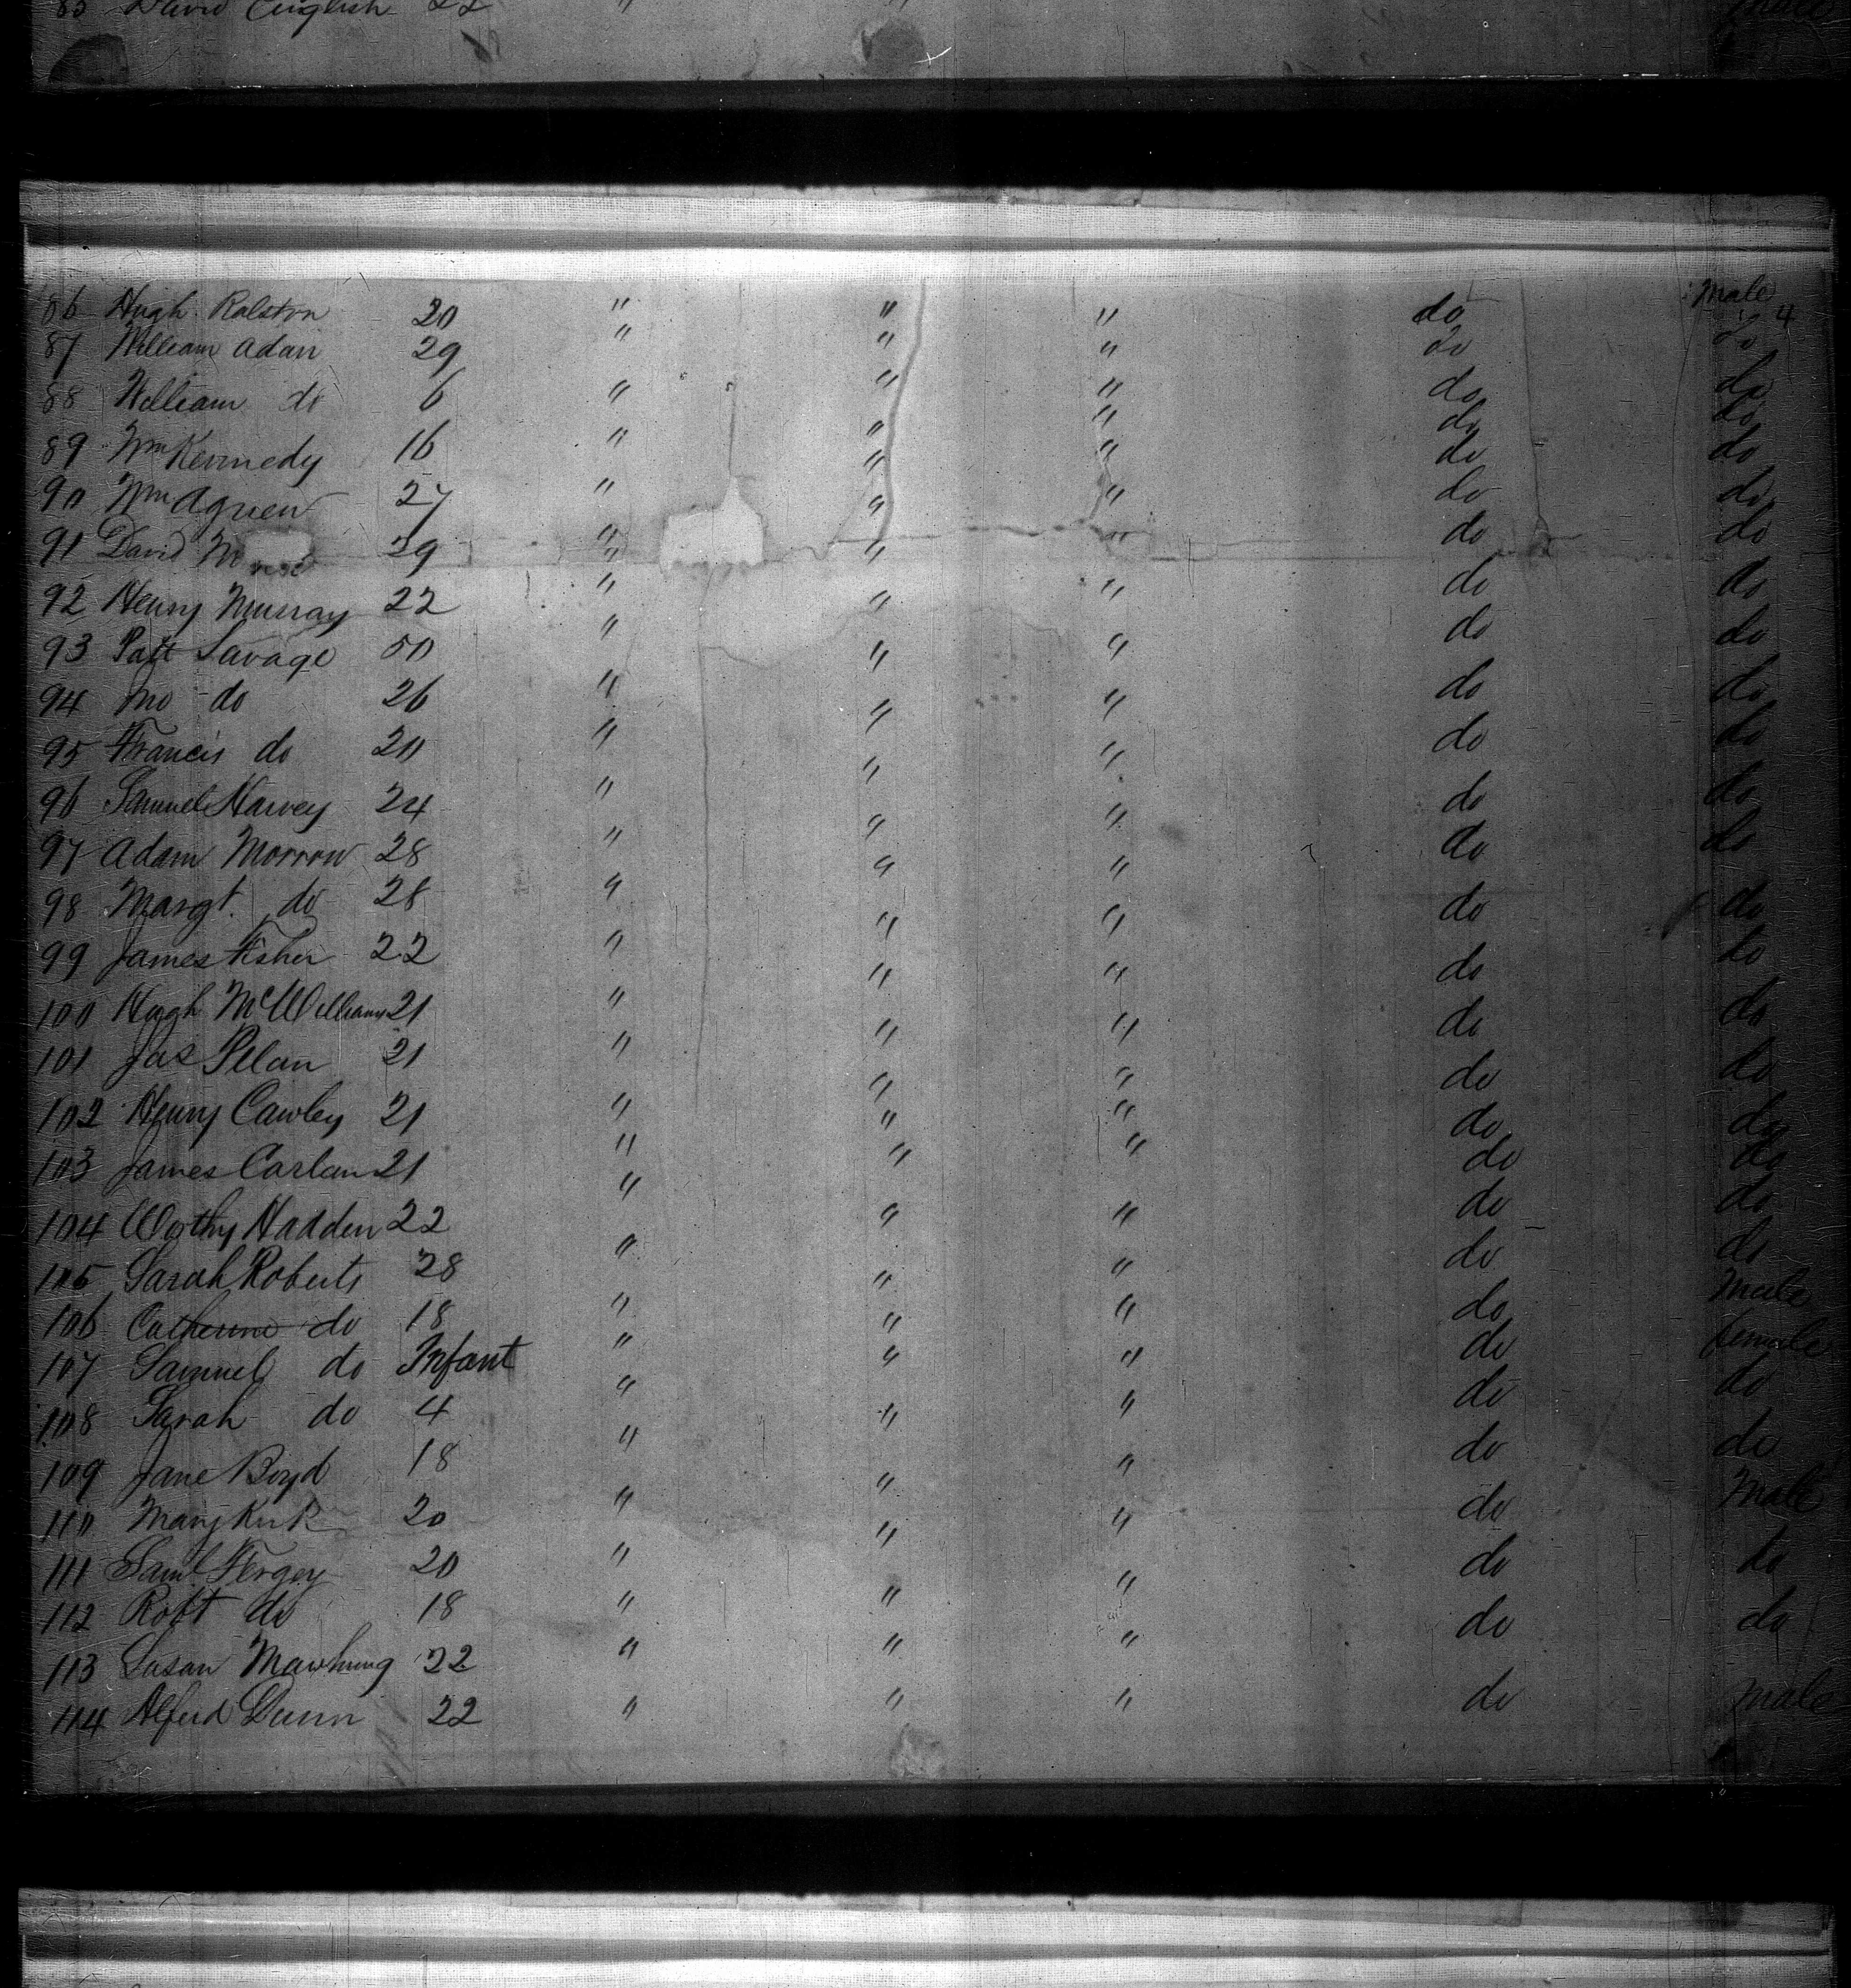 85 David English 22 " " male
86 Hugh Ralston 20 " " " do Male
87 William Adair 29 " " " do do 4
88 William do 6 " " " do do
89 Wm Kennedy 16 " " " do do
90 Wm Agnew 27 " " " do do
91 David 29 " " " do do
92 Henry Murray 22 " " " do do
93 Patt Savage 50 " " " do do
94 Jno do 26 " " " do do
95 Francis do 20 " " " do do
96 Samuel Harvey 24 " " " do do
97 Adam Morrow 28 " " " do do
98 Margt. do 28 " " " do do
99 James Fisher 22 " " " do do
100 Hugh McWilliams 21 " " " do do
101 Jas Pelan 21 " " " do do
102 Henry Cawley 21 " " " do do
103 James Carlan 21 " " " do do
104 Worthy Hadden 22 " " " do do
105 Sarah Roberts 28 " " " do do
106 Catherine do 18 " " " do Male
107 Samuel do Infant " " " do female
108 Sarah do 4 " " " do do
109 Jane Boyd 18 " " " do do
110 Mary Kirk 20 " " " do Male
111 Saml Fergey 20 " " " do do
112 Robt do 18 " " " do do
113 Susan Mawhinny 22 " " "
114 Alfred Dunn 22 " " " do male